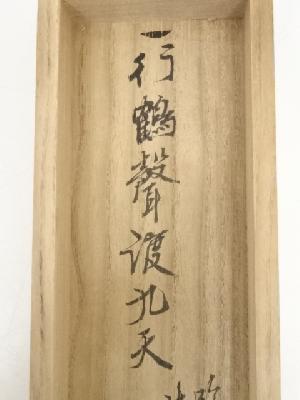 一行鶴聲渡九天